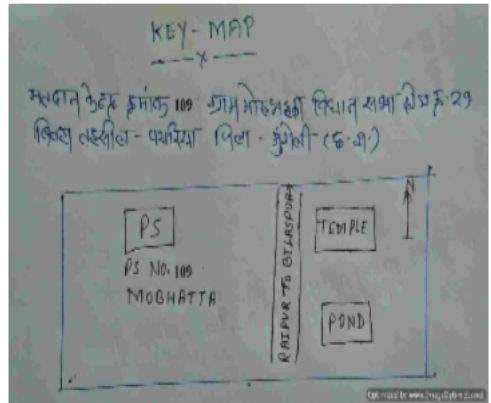 KEY-MAP
x
मतदान केन्द्र क्रमांक 109 ग्राम मोहभट्ठा विधान सभा क्षेत्र क्र-29
बिल्हा तहसील - पथरिया जिला - मुंगेली - (छ.ग.)
N
PS
TEMPLE
PS NO. 109
MOBHATTA
RAIPUR TO BILASPUR
POND